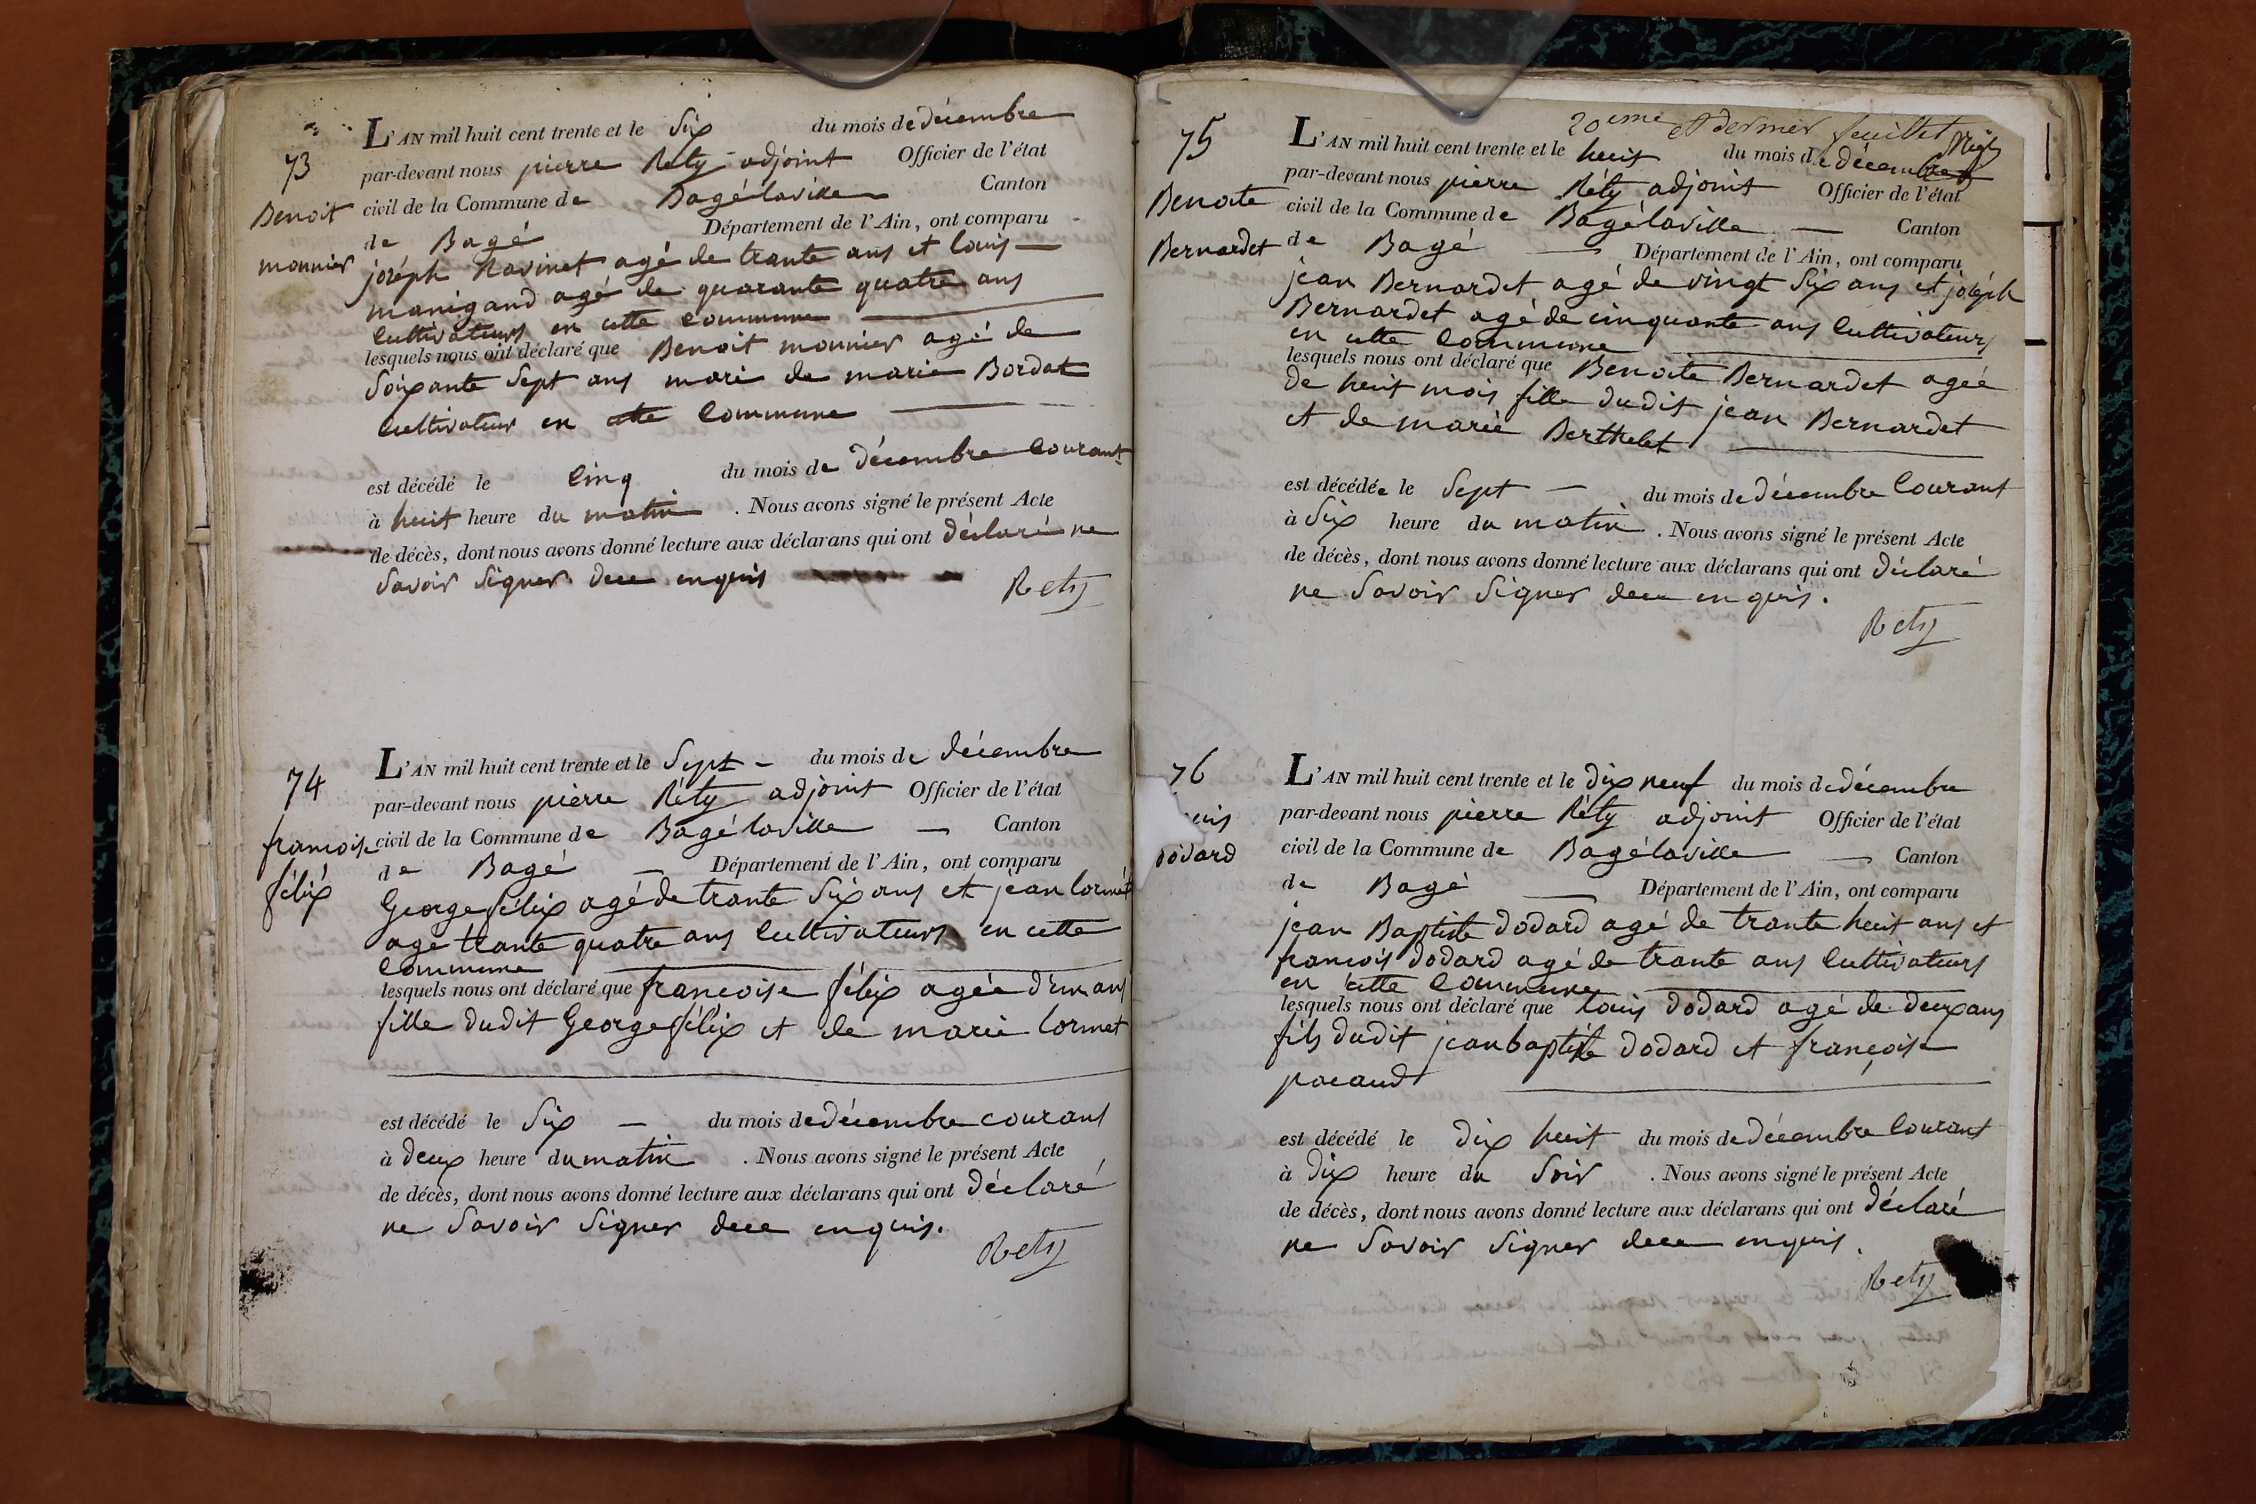 73
Benoit
monnier
L'AN mil huit cent trente et le Six du mois de décembre
par-devant nous pierre Réty adjoint Officier de l'état
civil de la Commune de Bagélaville Canton
de Bagé Département de l'Ain, ont comparu
joséph Navinet agé de trante ans et louis
manigand agé de quarante quatre ans
Cultivateurs en cette commune
lesquels nous ont déclaré que Benoit monnier agé de
Soixante Sept ans mari de marie Bordat
Cultivateur en cette Commune
est décédé le Cinq du mois de décembre Courant
à huit heure du matin . Nous avons signé le présent Acte
de décès, dont nous avons donné lecture aux déclarans qui ont déclaré ne
Savoir Signer dece enquis
Rety
74
francoise
félix
L'AN mil huit cent trente et le Sept du mois de décembre
par-devant nous pierre Réty adjoint Officier de l'état
civil de la Commune de Bagélaville Canton
de Bagé Département de l'Ain, ont comparu
George félix agé de trante Six ans et jean lormet
agé trante quatre ans Cultivateurs en cette
Commune
lesquels nous ont déclaré que francoise félix agée d'un ans
fille dudit George félix et de marie lormet
est décédé le Six du mois de décembre courant
à deux heure du matin . Nous avons signé le présent Acte
de décès, dont nous avons donné lecture aux déclarans qui ont déclaré
ne Savoir Signer dece enquis.
Rety
20eme et dernier feuillet
75
Benoite
Bernardet
L'AN mil huit cent trente et le huit du mois de décembre
par-devant nous pierre Réty adjoint Officier de l'état
civil de la Commune de Bagélaville Canton
de Bagé Département de l'Ain, ont comparu
jean Bernardet agé de vingt Six ans et joséph
Bernardet agé de cinquante ans Cultivateurs
en cette Commune
lesquels nous ont déclaré que Benoite Bernardet agée
de huit mois fille dudit jean Bernardet
et de marie Berthelet
est décédée le Sept du mois de décembre Courant
à Six heure du matin . Nous avons signé le présent Acte
de décès, dont nous avons donné lecture aux déclarans qui ont déclaré
ne Savoir Signer dece enquis.
Rety
76
uis
dodard
L'AN mil huit cent trente et le dix neuf du mois de décembre
par-devant nous pierre Réty adjoint Officier de l'état
civil de la Commune de Bagélaville Canton
de Bagé Département de l'Ain, ont comparu
jean Baptiste dodard agé de trante huit ans et
francois dodard agé de trante ans Cultivateurs
en cette Commune
lesquels nous ont déclaré que louis dodard agé de deux ans
fils dudit jean baptiste dodard et françoise
pacaud
est décédé le dix huit du mois de décembre Courant
à dix heure du Soir . Nous avons signé le présent Acte
de décès, dont nous avons donné lecture aux déclarans qui ont déclaré
ne Savoir Signer dece enquis.
Rety